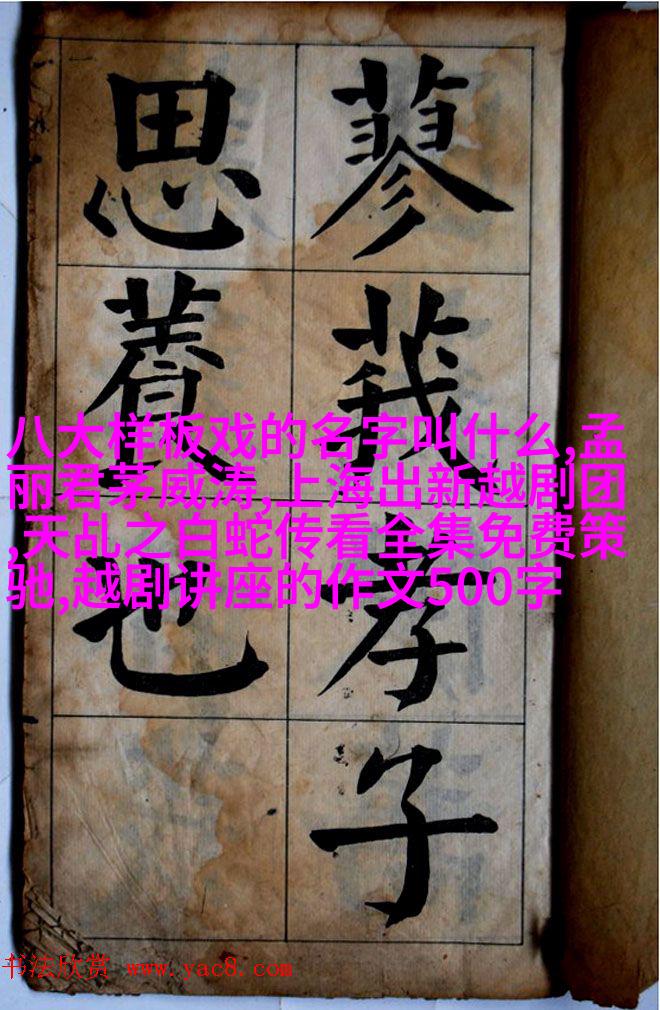 蓼莪孝子
思養也
八大样板戏的名字叫什么,孟
丽君茅威涛,上海出新越剧团
,天乩之白蛇传看全集免费策
驰,越剧讲座的作文500字
书法欣赏 www.yac8.com